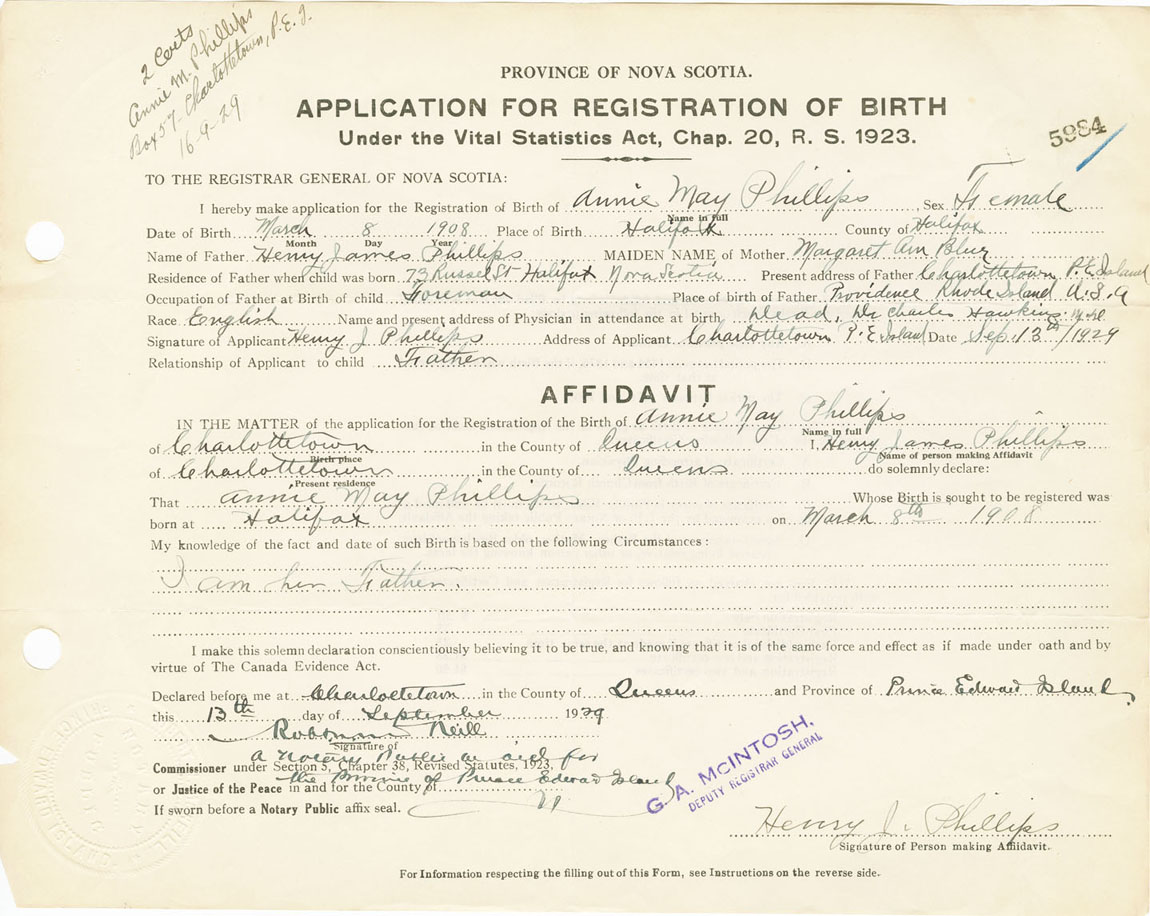 2 Certs
Annie M. Phillips
Box 57. Charlottetown, P.E.I.
16-9-29
PROVINCE OF NOVA SCOTIA.
APPLICATION FOR REGISTRATION OF BIRTH
Under the Vital Statistics Act, Chap. 20, R. S. 1923.
5984
TO THE REGISTRAR GENERAL OF NOVA SCOTIA:
I hereby make application for the Registration of Birth of Annie May Phillips Sex Female
Name in full
Date of Birth March 8 1908 Place of Birth Halifax County of Halifax
Month Day Year
Name of Father Henry James Phillips MAIDEN NAME of Mother Margaret Ann
Residence of Father when child was born 73 Russel St Halifax Nova Scotia Present address of Father Charlottetown P.E. Island
Occupation of Father at Birth of child Foreman Place of birth of Father Providence Rhode Island U.S.A
Race English Name and present address of Physician in attendance at birth Dead, Dr Charles Hawkins
Signature of Applicant Henry J. Phillips Address of Applicant Charlottetown P.E Island Date Sep. 13th/1929
Relationship of Applicant to child Father
AFFIDAVIT
IN THE MATTER of the application for the Registration of the Birth of Annie May Phillips
Name in full
of Charlottetown in the County of Queens I. Henry James Phillips
Birth place Name of person making Affidavit
of Charlottetown in the County of Queens do solemnly declare:
Present residence
That Annie May Phillips Whose Birth is sought to be registered was
born at Halifax on March 8th 1908
My knowledge of the fact and date of such Birth is based on the following Circumstances:
I am her Father.
I make this solemn declaration conscientiously believing it to be true, and knowing that it is of the same force and effect as if made under oath and by
virtue of The Canada Evidence Act.
Declared before me at Charlottetown in the County of Queens and Province of Prince Edward Island,
this 13th day of September 1929
Neill
Signature of
A Notary Public in and for
Commissioner under Section 5, Chapter 38, Revised Statutes, 1923,
the Province of Prince Edward Island
or Justice of the Peace in and for the County of
If sworn before a Notary Public affix seal.
G. A. McINTOSH,
DEPUTY REGISTRAR GENERAL
Henry J. Phillips
Signature of Person making Affidavit.
For Information respecting the filling out of this Form, see Instructions on the reverse side.